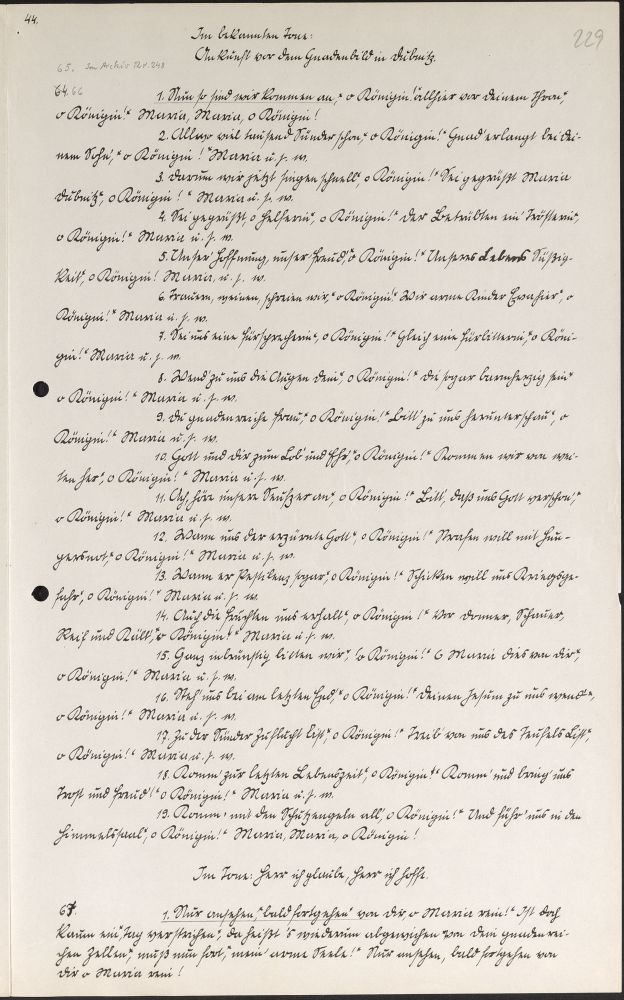 44.
229
Im bekannten Tone:
Ankunft vor dem Gnadenbild in Dubnitz.
65. Im Archiv Nr. 248
64. 66
1. Nun so sind wir kommen an,* o Königin! allhier vor deinem Thron,*
o Königin!* Maria, Maria, o Königin!
2. Allwo viel tausend Sünder schon,* o Königin!* Gnad' erlangt bei dei-
nem Sohn,* o Königin!* Maria u. s. w.
3. Darum wir jetzt singen schnell,* o Königin!* Sei gegrüßt Maria
Dubnitz,* o Königin!* Maria u. s. w.
4. Sei gegrüßt, o Helferin,* o Königin!* Der Betrübten ein' Trösterin,*
o Königin!* Maria u. s. w.
5. Unser Hoffnung, unser Freud',* o Königin!* Unseres Lebens Süßig-
keit,* o Königin! Maria, u. s. w.
6. Trauern, weinen, schreien wir,* o Königin!* Wir arme Kinder Eva hier,* o
Königin!* Maria u. s. w.
7. Sei uns eine Fürsprecherin,* o Königin!* Gleich eine Fürbitterin,* o Köni-
gin!* Maria u. s. w.
8. Wend' zu uns die Augen dein,* o Königin!* Die sogar barmherzig sein*
o Königin!* Maria u. s. w.
9. Du gnadenreiche Frau,* o Königin!* Bitt' zu uns herunterschau',* o
Königin!* Maria u. s. w.
10. Gott und dir zum Lob und Ehr,* o Königin!* Kommen wir von wei-
ten her,* o Königin!* Maria u. s. w.
11. Ach, hör' unsere Seufzer an,* o Königin!* Bitt', daß uns Gott verschon',*
o Königin!* Maria u. s. w.
12. Wann uns der erzürnte Gott,* o Königin!* Strafen will mit Hun-
gersnot,* o Königin!* Maria u. s. w.
13. Wann er Pestilenz sogar,* o Königin!* Schicken will uns Kriegsge-
fahr,* o Königin!* Maria u. s. w.
14. Auch die Früchten uns erhalt,* o Königin!* Vor Donner, Schauer,
Reif und Kält',* o Königin!* Maria u. s. w.
15. Ganz inbrünstig bitten wir,* o Königin!* O Maria dies von dir,*
o Königin!* Maria u. s. w.
16. Steh' uns bei am letzten End',* o Königin!* Deinen Jesum zu uns wend',*
o Königin!* Maria u. s. w.
17. Zu der Sünder Zuflucht bist,* o Königin!* Treib' von uns des Teufels List,*
o Königin!* Maria u. s. w.
18. Komm' zur letzten Lebenszeit,* o Königin!* Komm' und bring' uns
Trost und Freud'!* o Königin!* Maria u. s. w.
19. Komm' mit den Schutzengeln all',* o Königin!* Und führ' uns in den
Himmelssaal,* o Königin!* Maria, Maria, o Königin!
Im Tone: Herr ich glaube, Herr ich hoffe.
67.
1. Nur ansehen,* bald fortgehen* von dir, o Maria rein!* Ist doch
kaum ein Tag verstrichen,* da heißt 's wiederum abgewichen* von dein gnadenrei-
chen Zellen,* muß nun fort,* mein' arme Seele!* Nur ansehen, bald fortgehen von
dir o Maria rein!